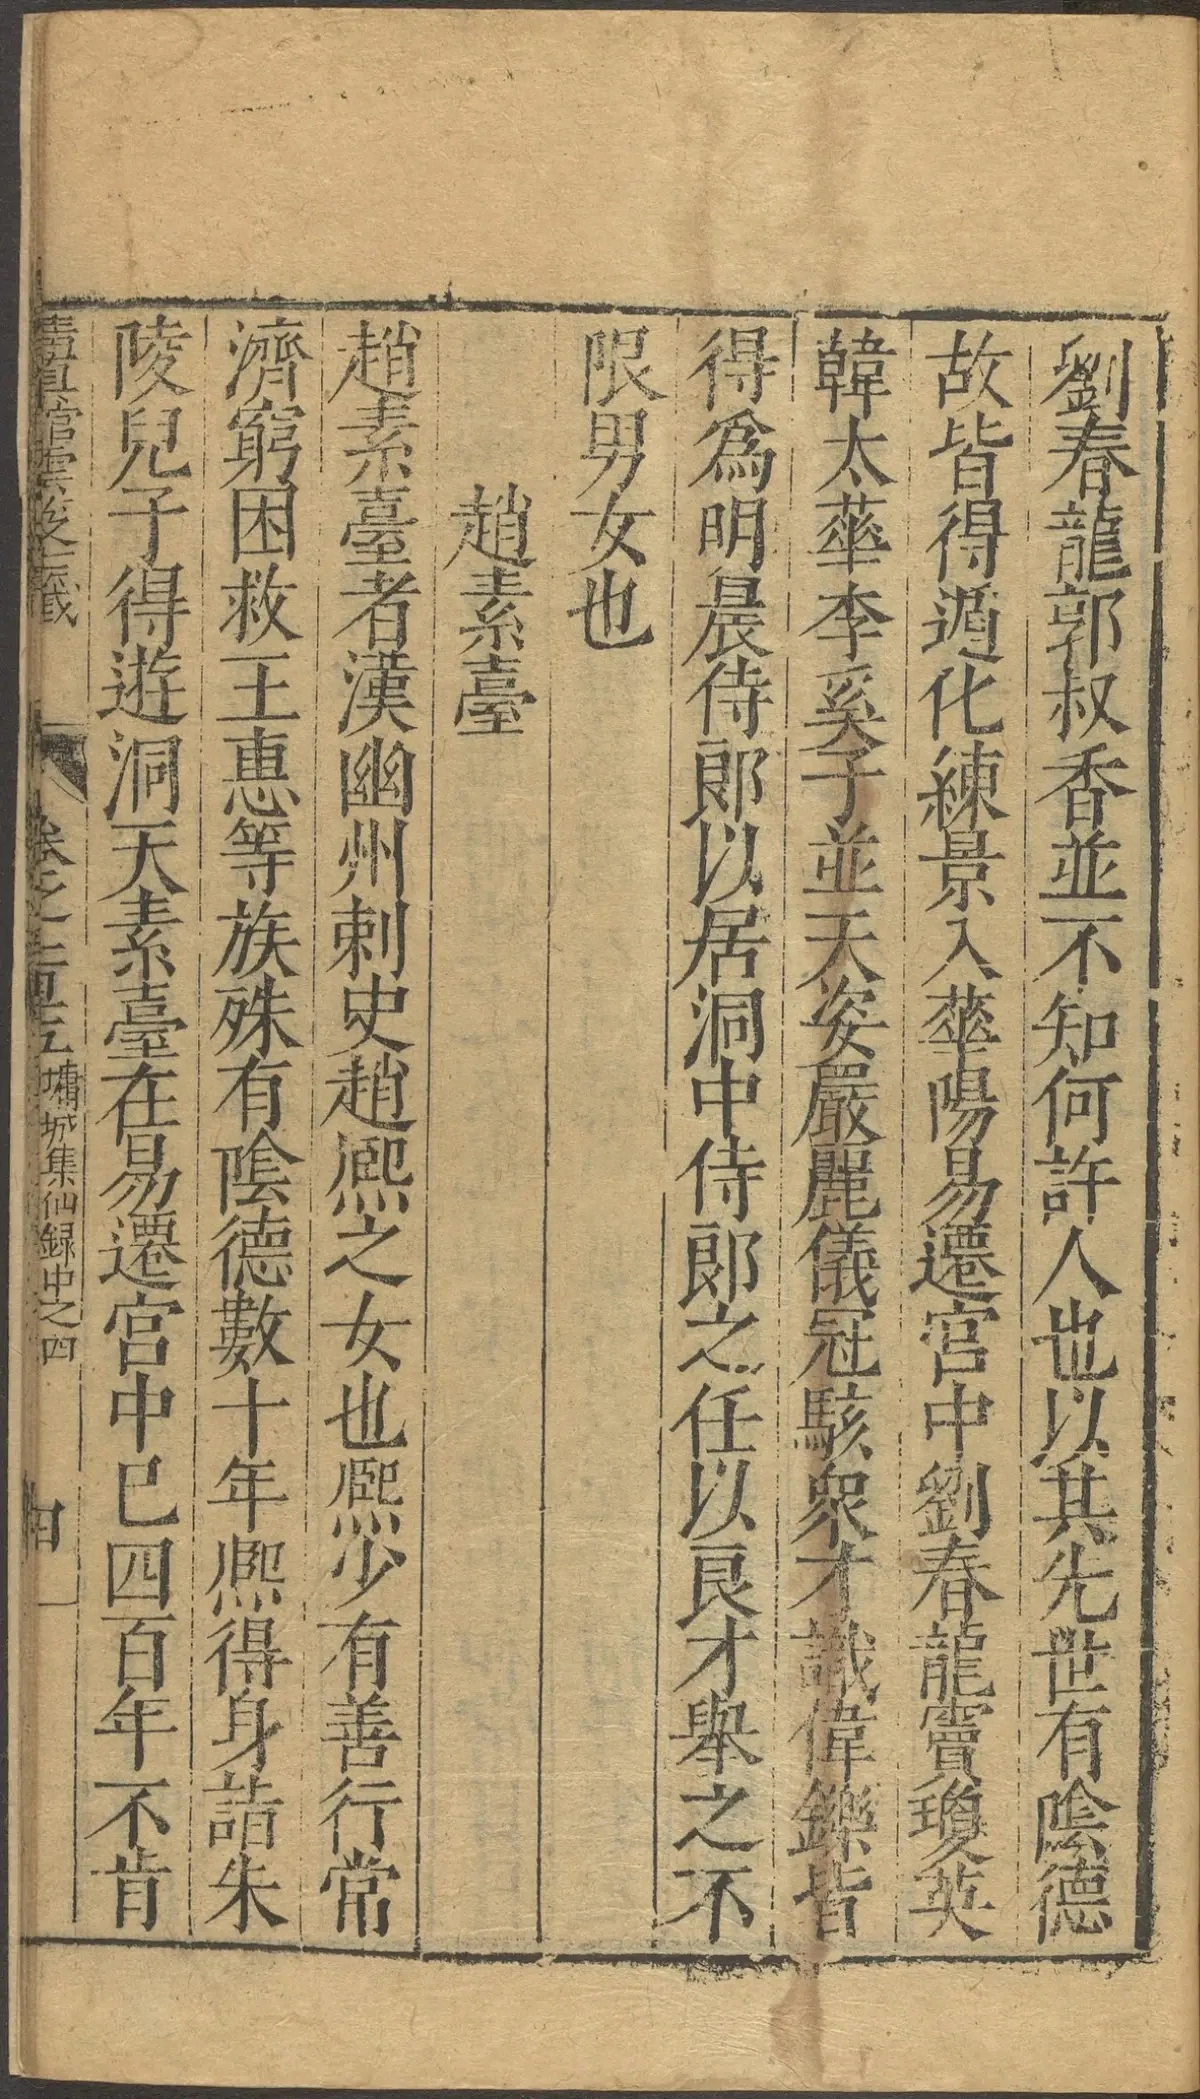 劉春龍郭叔香並不知何許人也以其先世有陰德
故皆得遁化練景入華陽易遷宮中劉春龍竇瓊英
韓太華李奚子並天姿嚴麗儀冠駭衆才識偉鑠皆
得爲明晨侍郎以居洞中侍郎之任以良才舉之不
限男女也
趙素臺
趙素臺者漢幽州刺史趙熙之女也熙少有善行常
濟窮困救王惠等族殊有陰德數十年熙得身詣朱
陵兒子得遊洞天素臺在易遷宮中已四百年不肯
清真館雲笈七籤 卷之一百十五 墉城集仙録中之四 四